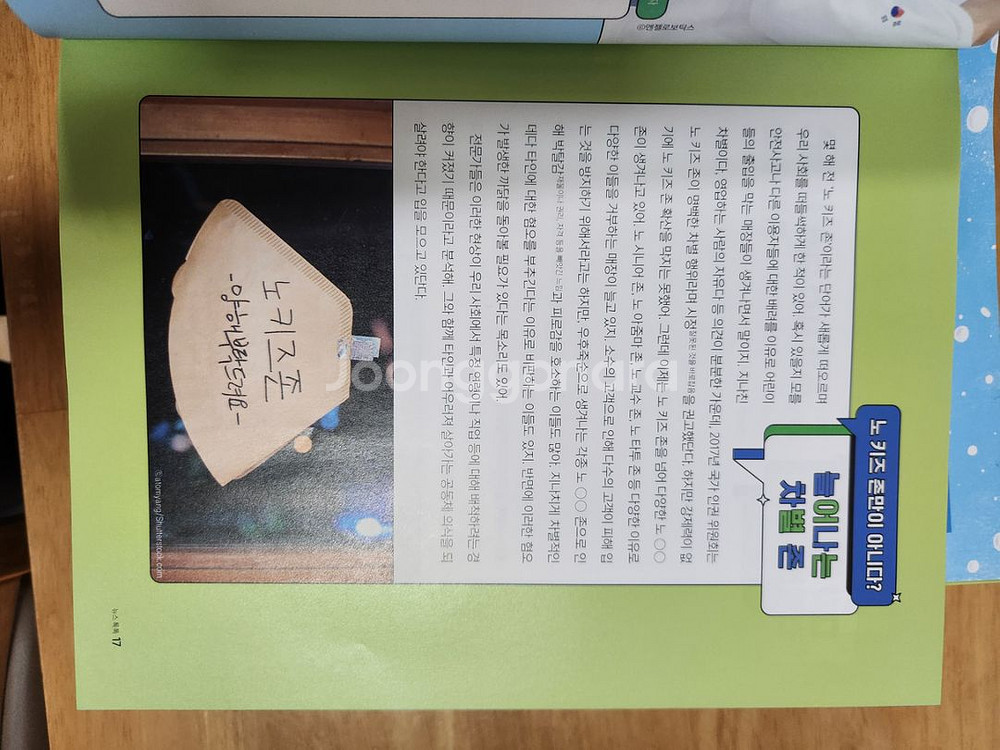 노 키즈 존만이 아니다?
늘어나는
차별 존
몇 해 전 '노 키즈 존'이라는 단어가 새롭게 떠오르며
우리 사회를 떠들썩하게 한 적이 있어. 혹시 있을지 모를
안전사고나 다른 이용자들에 대한 배려를 이유로 어린이
들의 출입을 막는 매장들이 생겨나면서 말이지. 지나친
차별이다, 영업하는 사람의 자유다 등 의견이 분분한 가운데, 2017년 국가 인권 위원회는
노 키즈 존이 명백한 차별 행위라며 시정잘못된 것을 바로잡음을 권고했단다. 하지만 강제력이 없
기에 노 키즈 존 확산을 막지는 못했어. 그런데 이제는 노 키즈 존을 넘어 다양한 노 ○○
존이 생겨나고 있어. 노 시니어 존, 노 아줌마 존, 노 교수 존, 노 타투 존 등 다양한 이유로
다양한 이들을 거부하는 매장이 늘고 있지. 소수의 고객으로 인해 다수의 고객이 피해 입
는 것을 방지하기 위해서라고는 하지만, 우후죽순으로 생겨나는 각종 노 ○○ 존으로 인
해 박탈감재물이나 권리, 자격 등을 빼앗긴 느낌과 피로감을 호소하는 이들도 많아. 지나치게 차별적인
데다 타인에 대한 혐오를 부추긴다는 이유로 비판하는 이들도 있지. 반면에 이러한 혐오
가 발생한 까닭을 돌아볼 필요가 있다는 목소리도 있어.
전문가들은 이러한 현상이 우리 사회에서 특정 연령이나 직업 등에 대해 배척하려는 경
향이 커졌기 때문이라고 분석해. 그와 함께 타인과 어우러져 살아가는 공동체 의식을 되
살려야 한다고 입을 모으고 있단다.
노키즈존
-양해부탁드려요-
©atomyang/Shutterstock.com
뉴스 톡톡 17
Joonggonara